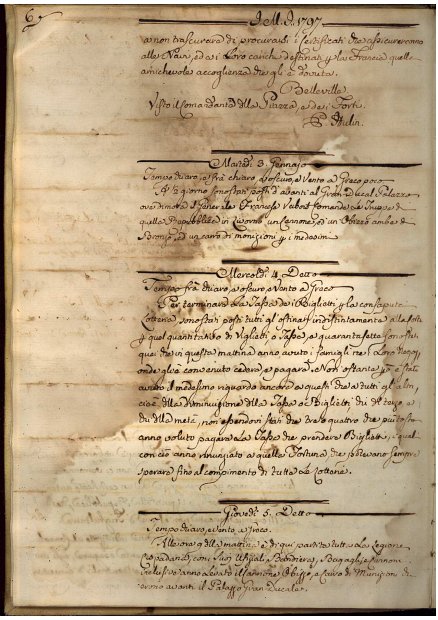 6
J.M.J. 1797
e non trascurerà di procurarsi i certificati che assicureranno
alle Navi, ed a i Loro carichi destinati la Francia quella
amichevole accoglienza che gli è dovuta.
Belleville
Visto il Comandante della Piazza, e dei Forti
Martedì 3. Gennajo
Tempo chiaro, e frà chiaro, e oscuro, e Vento a Greco poco
giorno sono stati posti d'avanti al Gran Ducal Palazzo
ove dimora il Generale Francese Vaubois Comandante le Truppe di
quella Repubblica in Livorno un Cannone, ed un Obizzo ambe di
Bronzo, ed un carro di monizioni i medesimi
Mercoldì 4. Detto
Tempo frà chiaro, e oscuro, e Vento a Greco
Per terminare La Tassa de i Biglietti la consaputa
Lotteria sono stati posti tutti gl'ostinati indistintamente alla
quel quantitativo di Viglietti e Tasse, e quaranta sette sono stati
quei che in questa mattina anno avuto i famigli ne i Loro
onde gl'à convenuto cedere, e pagare. Non ostante è stato
avuto il medesimo riguardo ancora a questi che a tutti gl'altri,
cioè della diminuzione della Tassa de Biglietti, chi del terzo, e
chi della metà, non essendovi stati che tre o quattro che più tosto
anno voluto pagare La Tassa che prendere i Biglietti, i quali
con ciò anno rinunziato a quella Fortuna che potevano sempre
sperare fino al compimento di tutta La Lotteria.
Giovedì 5. Detto
Tempo chiaro, e vento a Greco.
Alle ore 9 della mattina è di qui partita tutta La Legione
Cispadana, con i suoi Ufiziali, Bandiera, Bagagli, e Cannoni
Levato il Cannone Obizzo, e Carro di Munizioni che
erono avanti il Palazzo Gran Ducale.